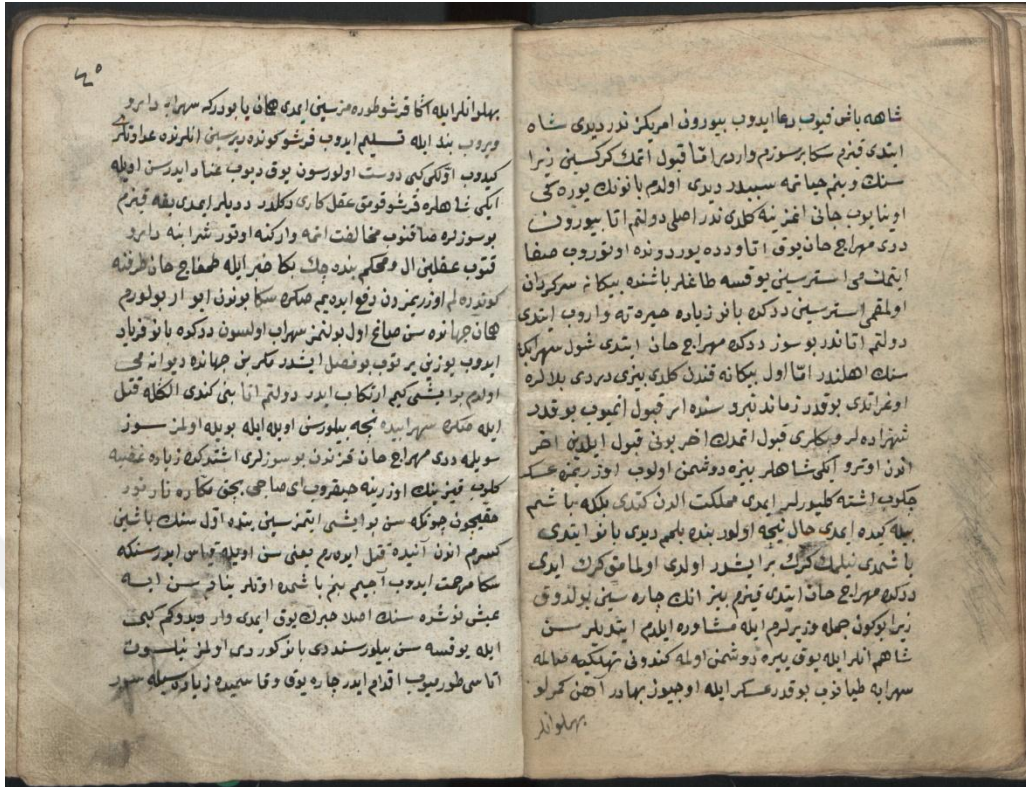 شاهه باش قیوب دعا ایدوب بیورون امریکز ندر دیدی شاه
ایتدی قیزم سکا بر سوزم واردر اما قبول اتمك کرکسینی زیرا
سنك و بنم حیاتمه سببدر دیدی اولدم بانونك یوره کی
اوینایوب جانی اغزینه کلدی ندر اصلی دولتم اتا بیورون
ددی مهراج خان یوق اتا و دده یوردونده اوتوروب صفا
ایتمك می استرسینی یوقسه طاغلر باشنده بیکانه سرکردان
اولمقمی استرسینی ددکده بانو زیاده حیرته واروب ایتدی
دولتم اتا ندر بو سوز ددکده مهراج خان ایتدی شول سهرابكه
سنك اهلندر اما اول بیکانه قندن کلدی بیزی دردی بلالره
اوغراتدی بو قدر زماندنبرو سنده انی قبول اتمیوب بو قدر
شهزاده لر و بکلری قبول اتمدك اخر بونی قبول ایلدین اخر
اندن اوترو ایکی شاهلر بیزه دوشمن اولوب اوزریمزه عسکر
چکوب اشته کلیورلر ایمدی مملکت الدن کتدی بلکه باشم
بیله کیده ایمدی حال نیجه اولور بنده بلمم دیدی بانو ایتدی
باشمدی نیلمك کرك بر ایشدر اولدی اولمامق کرك ایدی
ددکده مهراج خان ایتدی قیزم بیز انك چاره سین بولدوق
زیرا بوکون جمله وزیرلرم ایله مشاوره ایلدم ایتدیلر سن
شاهم انلر ایله یوق ییره دوشمن اولمه کندونی تهلکیه صالمه
سهرابه طیانوب بو قدر عسکر ایله اوجیوز بهادر آهن کمرلو
بهلوانلر
٤٥
بهلوانلر ایله اکا قرشو طوره مزسینی ایمدی همان یا بودرکه سهرابه دارو
ویروب بند ایله تسلیم ایدوب قرشو کوندره رسینی انلرنده عداوتلری
کیدوب اولکی کبی دوست اولورسون یوق دیوب عناد ایدرسن اویله
ایکی شاهلره قرشو قومق عقل کاری دکلدر ددیلر ایمدی بقه قیزم
بو سوزلره صاقنوب مخالفت اتمه وار کنه اوتور شرابنه دارو
قتوب عقلین ال و محکم بنده چك بکا خبر ایله طمغاج خان طرفنه
کوندره لم اوزریمزدن دفع ایده یم صکره سکا بوندن ایو ار بولورم
همان جهانده سن صاغ اول بولنمز سهراب اولسون ددکده بانو فریاد
ایدوب یوزین یرتوب بو فصل ایشدر مکر بن جهانده دیوانه می
اولدم بو ایشی کیم ارتکاب ایدر دولتم اتا بنی کندی الکله قتل
ایله صکره سهرابیده نیجه بیلورسن اویله ایله بویله اولمز سوز
سویله ددی مهراج خان قزندن بو سوزلری اشتدکده زیاده غضبه
کلوب قیزینك اوزرینه حیقروب ای صاچی بچق مکاره نار نور
حقیچون چونکه سن بو ایشی ایتمزسینی بنده اول سنك باشین
کسرم اندن آنیده قتل ایده رم یعنی سن اویله قیاس ایدرسنکه
سکا مرحمت ایدوب آجیم بنم باشمده اوتلر ینار سن ایسه
عیش نوشده سنك اصلا خبرك یوق ایمدی وار دیدوکم کبی
ایله یوقسه سن بیلورسن ددی بانو کوردی اولمز نیلسون
اتاسی طورمیوب اقدام ایدر چاره یوق